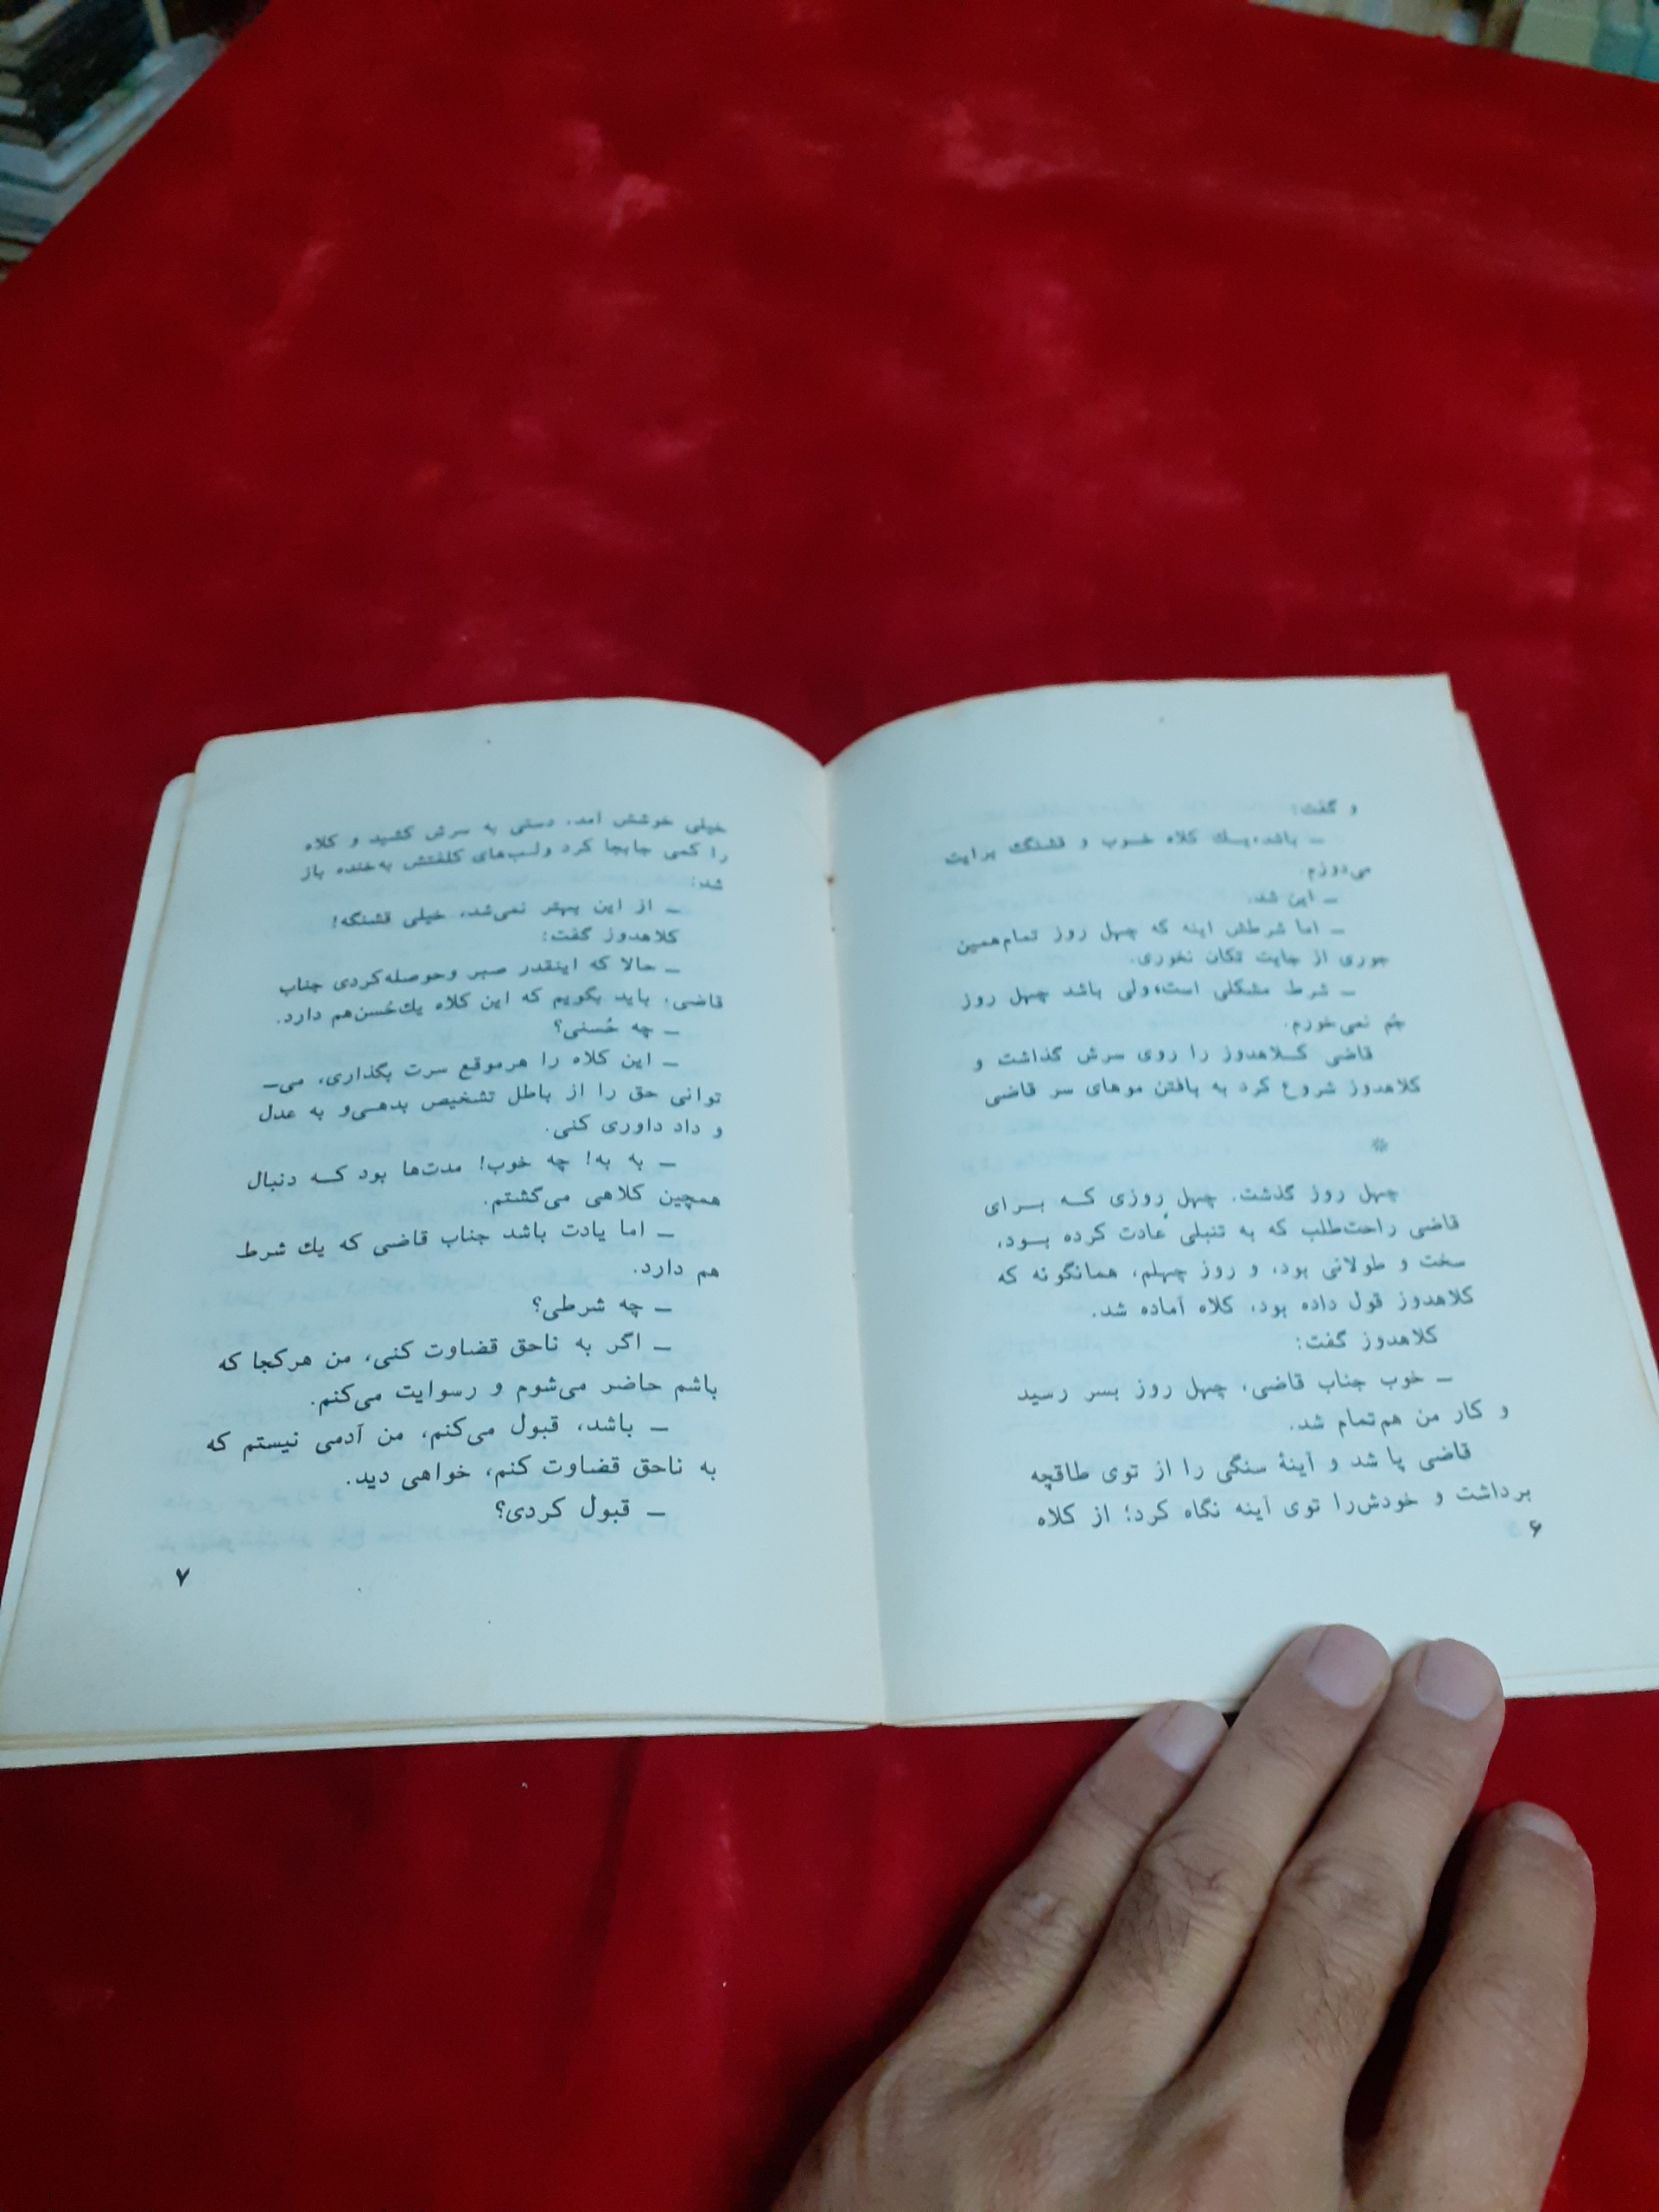 و گفت:
ـ باشد، یـك کلاه خـوب و قشنگ برایت
می‌دوزم.
ـ این شد.
ـ اما شرطش اینه که چهل روز تمام همین
جوری از جایت تکان نخوری.
ـ شرط مشکلی است، ولی باشد چهل روز
جُم نمی‌خورم.
قاضی کـلاهدوز را روی سرش گذاشت و
کلاهدوز شروع کرد به بافتن موهای سر قاضی
*
چهل روز گذشت. چهل روزی کـه بـرای
قاضی راحت‌طلب که به تنبلی عادت کرده بـود،
سخت و طولانی بود، و روز چهلم، همانگونه که
کلاهدوز قول داده بود، کلاه آماده شد.
کلاهدوز گفت:
ـ خوب جناب قاضی، چهل روز بسر رسید
و کار من هم تمام شد.
قاضی پا شد و آینهٔ سنگی را از توی طاقچه
برداشت و خودش‌را توی آینه نگاه کرد؛ از کلاه
۶
خیلی خوشش آمد. دستی به سرش کشید و کلاه
را کمی جابجا کرد و لب‌های کلفتش به خنده باز
شد:
ـ از این بهتر نمی‌شد، خیلی قشنگه!
کلاهدوز گفت:
ـ حالا که اینقدر صبر و حوصله کردی جناب
قاضی، باید بگویم که این کلاه یك حُسن هم دارد.
ـ چه حُسنی؟
ـ این کلاه را هرموقع سرت بگذاری، می‌ـ
توانی حق را از باطل تشخیص بدهـی و به عدل
و داد داوری کنی.
ـ به به! چه خوب! مدت‌ها بود کـه دنبال
همچین کلاهی می‌گشتم.
ـ اما یادت باشد جناب قاضی که یك شرط
هم دارد.
ـ چه شرطی؟
ـ اگر به ناحق قضاوت کنی، من هرکجا که
باشم حاضر می‌شوم و رسوایت می‌کنم.
ـ باشد، قبول می‌کنم، من آدمی نیستم که
به ناحق قضاوت کنم، خواهی دید.
ـ قبول کردی؟
۷